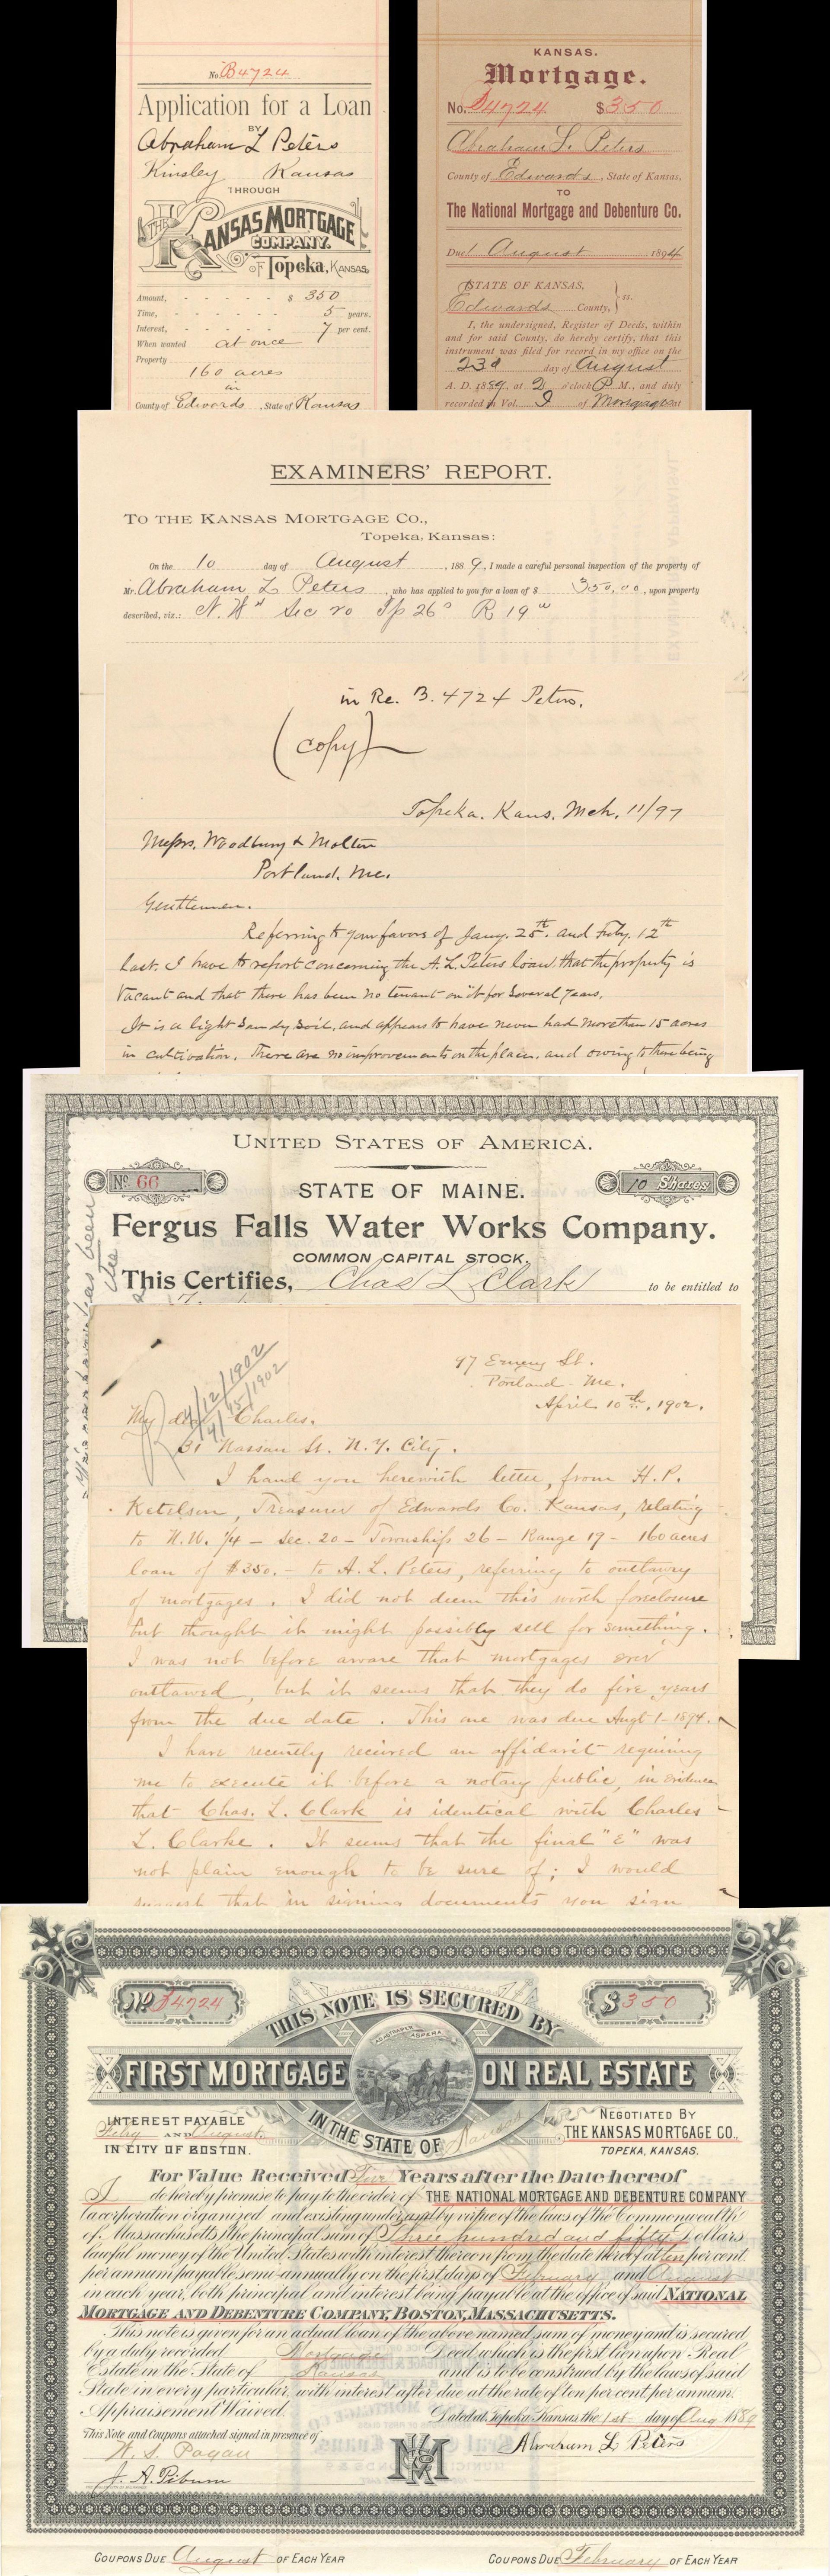 No. B4724
Application for a Loan
BY
Abraham L Peters
Kinsley Kansas
THROUGH
THE KANSAS MORTGAGE
COMPANY.
OF Topeka, KANSAS,
Amount, - - - - - $ 350
Time, - - - - - - 5 years.
Interest, - - - - - 7 per cent.
When wanted at once
Property
160 acres
in
County of Edwards, State of Kansas
KANSAS.
Mortgage.
No. B4724 $350
Abraham L. Peters
County of Edwards, State of Kansas,
TO
The National Mortgage and Debenture Co.
Due 1 August 1894
STATE OF KANSAS,
Edwards County, } ss.
I, the undersigned, Register of Deeds, within
and for said County, do hereby certify, that this
instrument was filed for record in my office on the
23d day of August
A. D. 1889, at 2 o'clock P. M., and duly
recorded in Vol. I of Mortgages at
EXAMINERS' REPORT.
TO THE KANSAS MORTGAGE CO.,
Topeka, Kansas:
On the 10 day of August, 1889, I made a careful personal inspection of the property of
Mr. Abraham L Peters, who has applied to you for a loan of $ 350.00, upon property
described, viz.: N. W 4 Sec 20 Tp 26 s R 19 w
in Re. B. 4724 Peters.
(copy)
Topeka. Kans. Mch. 11/97
Messrs. Woodbury & Moulton
Portland. Me.
Gentlemen.
Referring to your favors of Jany. 25th. and Feby. 12th
last. I have to report concerning the A. L. Peters loan, that the property is
vacant and that there has been no tenant on it for several years.
It is a light sandy soil, and appears to have never had more than 15 acres
in cultivation. There are no improvements on the place, and owing to there being
UNITED STATES OF AMERICA.
No. 66
10 Shares
STATE OF MAINE.
Fergus Falls Water Works Company.
COMMON CAPITAL STOCK,
This Certifies, Chas L Clark to be entitled to
has been
97 Emery St.
Portland Me.
April 10th, 1902.
4/12/1902
4/15/1902
My dear Charles.
31 Nassau St. N. Y. City.
I hand you herewith letter, from H. P.
Ketelsen, Treasurer of Edwards Co. Kansas, relating
to N. W. 1/4 - Sec. 20 - Township 26 - Range 19 - 160 acres
loan of $350. - to A. L. Peters, referring to outlawry
of mortgages. I did not deem this worth foreclosure
but thought it might possibly sell for something.
I was not before aware that mortgages ever
outlawed, but it seems that they do five years
from the due date. This one was due Augt 1 - 1894.
I have recently received an affidavit requiring
me to execute it before a notary public, in evidence
that Chas. L. Clark is identical with Charles
L. Clarke. It seems that the final "E" was
not plain enough to be sure of; I would
suggest that in signing documents you sign
No. B4724
$350
THIS NOTE IS SECURED BY
AD ASTRA PER ASPERA
FIRST MORTGAGE ON REAL ESTATE
IN THE STATE OF Kansas
INTEREST PAYABLE
Feby AND August.
IN CITY OF BOSTON.
NEGOTIATED BY
THE KANSAS MORTGAGE CO.,
TOPEKA, KANSAS.
For Value Received Five Years after the Date hereof
I do hereby promise to pay to the order of THE NATIONAL MORTGAGE AND DEBENTURE COMPANY
(a corporation organized and existing under and by virtue of the laws of the Commonwealth
of Massachusetts) the principal sum of Three hundred and fifty Dollars
lawful money of the United States with interest thereon from the date hereof at ten per cent.
per annum payable semi-annually on the first days of February and August
in each year, both principal and interest being payable at the office of said NATIONAL
MORTGAGE AND DEBENTURE COMPANY, BOSTON, MASSACHUSETTS.
This note is given for an actual loan of the above named sum of money and is secured
by a duly recorded Mortgage Deed which is the first lien upon Real
Estate in the State of Kansas and is to be construed by the laws of said
State in every particular, with interest after due at the rate of ten per cent. per annum.
Appraisement Waived. Dated at Topeka Kansas the 1st day of Aug 1889
This Note and Coupons attached signed in presence of
W. S. Pagan
J. A. Piburn
Abraham L Peters
COUPONS DUE August OF EACH YEAR
COUPONS DUE February OF EACH YEAR